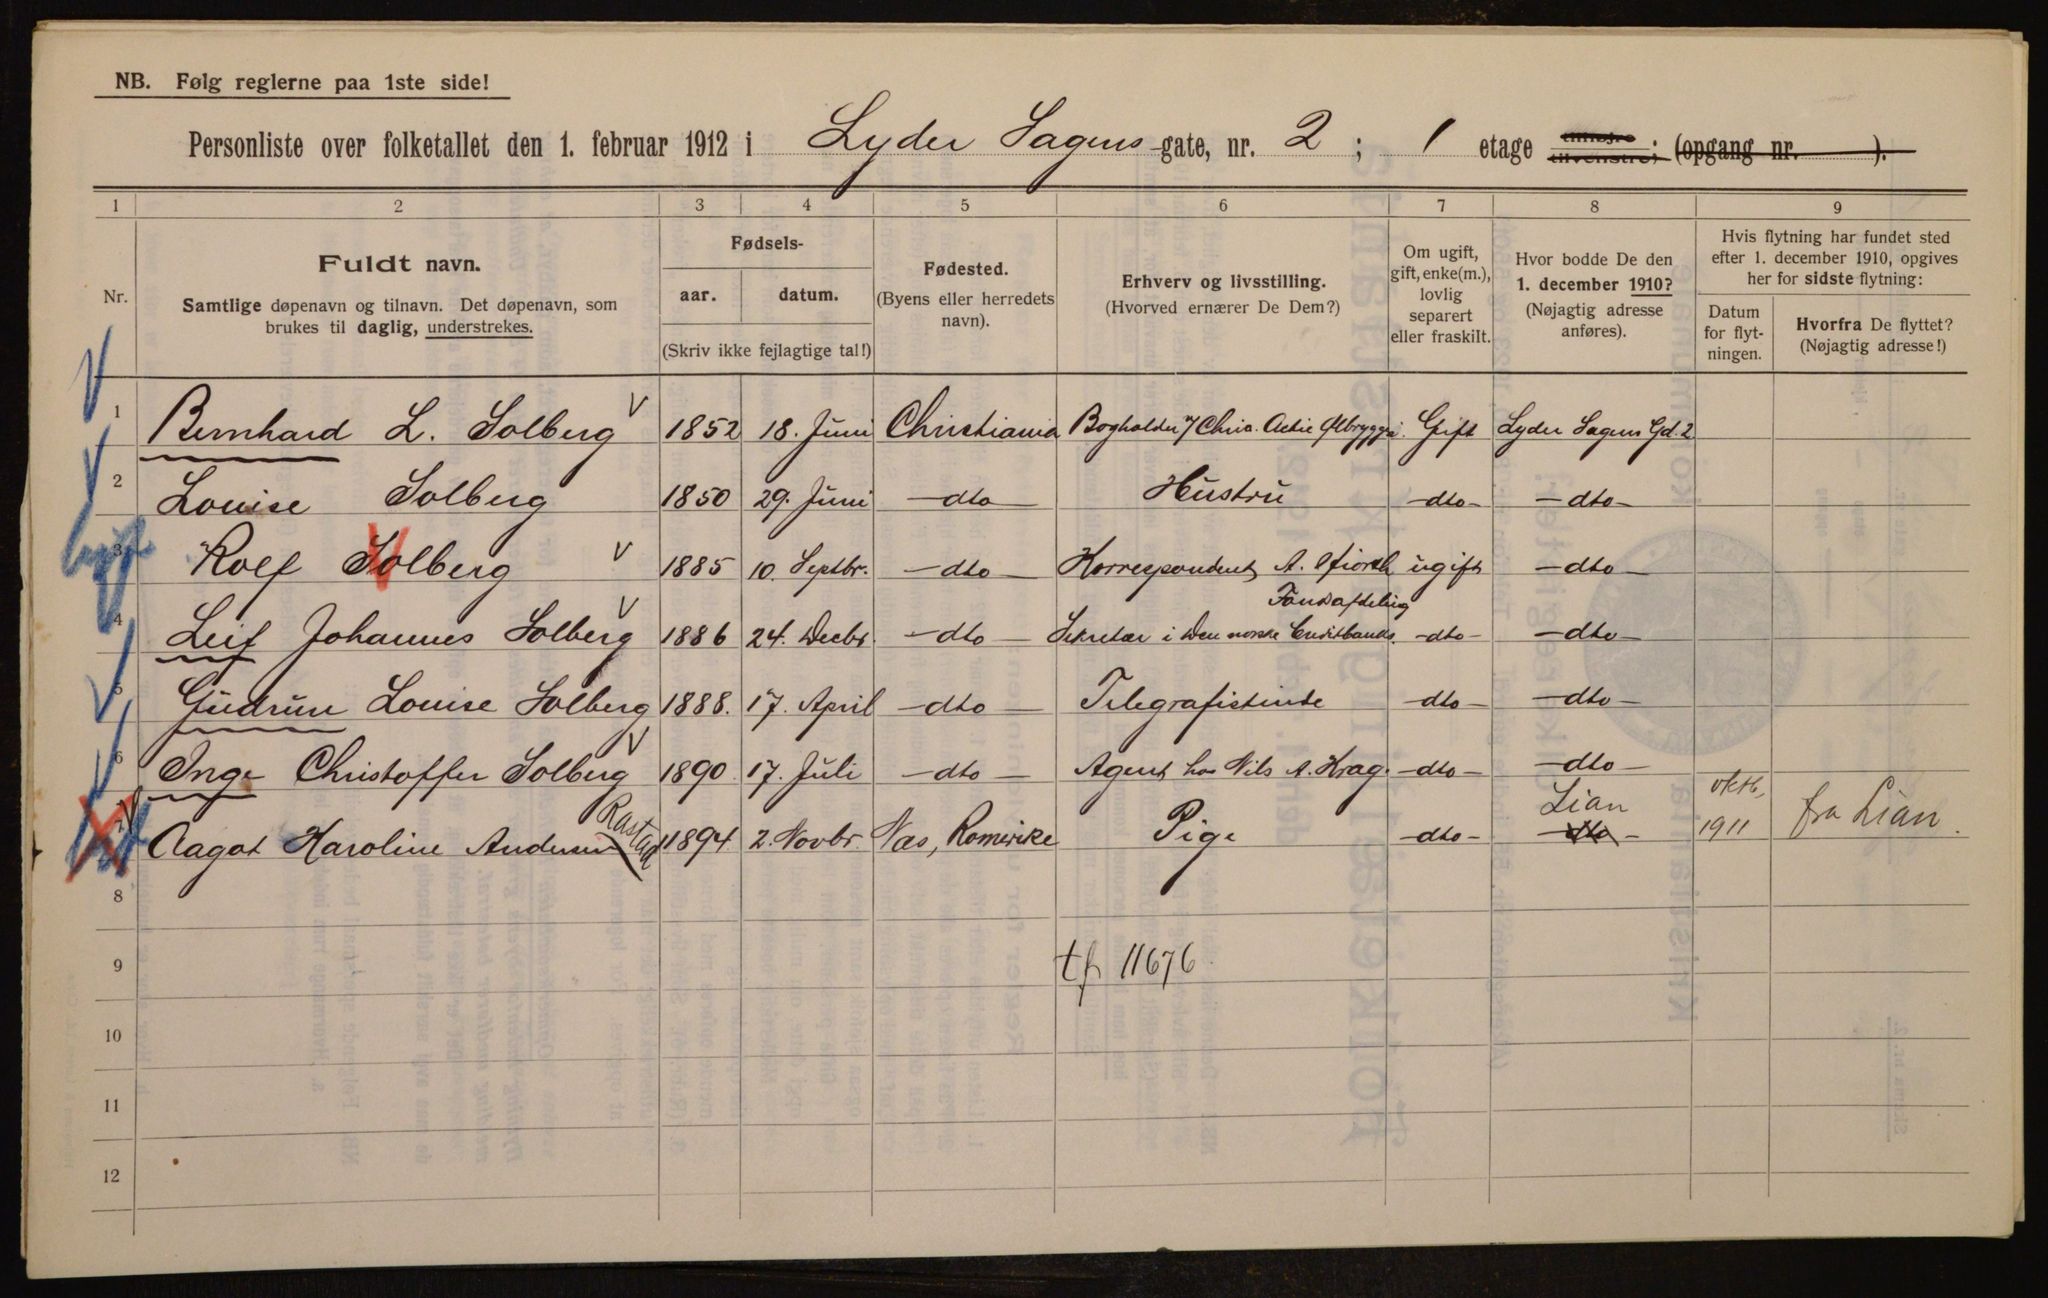 NB. Følg reglerne paa 1ste side!
Personliste over folketallet den 1. februar 1912 i Lyder Sagens gate, nr. 2 ; 1 etage tilhøjre tilvenstre; (opgang nr. ).
1 2 3 4 5 6 7 8 9
Nr.
Fuldt navn.
Samtlige døpenavn og tilnavn. Det døpenavn, som
brukes til daglig, understrekes.
Fødsels-
aar. datum.
(Skriv ikke fejlagtige tal!)
Fødested.
(Byens eller herredets
navn).
Erhverv og livsstilling.
(Hvorved ernærer De Dem?)
Om ugift,
gift, enke(m.),
lovlig
separert
eller fraskilt.
Hvor bodde De den
1. december 1910?
(Nøjagtig adresse
anføres).
Hvis flytning har fundet sted
efter 1. december 1910, opgives
her for sidste flytning:
Datum
for flyt-
ningen.
Hvorfra De flyttet?
(Nøjagtig adresse!)
1 Bernhard L. Solberg 1852 18. Juni Christiania Bogholder Chria. Actie Ølbryggi. Gift Lyder Sagens Gd. 2
2 Louise Solberg 1850 29. Juni -dto- Hustru -dto- -dto-
3 Rolf Solberg 1885 10. Septbr. -dto- Korrespondent A. ugift -dto-
4 Leif Johannes Solberg 1886 24. Decbr. -dto- Sekretær i Den norske Creditbanks Fondsafdeling -dto- -dto-
5 Gudrun Louise Solberg 1888. 17. April -dto- Telegrafistinde -dto- -dto-
6 Inge Christoffer Solberg 1890. 17. Juli -dto- Agent hos Nils A. Krag. -dto- -dto-
7 Aagot Karoline Andersen Rastad 1894 2. Novbr. Næs, Romerike Pige -dto- -dto- Lian oktb, 1911 fra Lian.
8
9 tf 11676
10
11
12